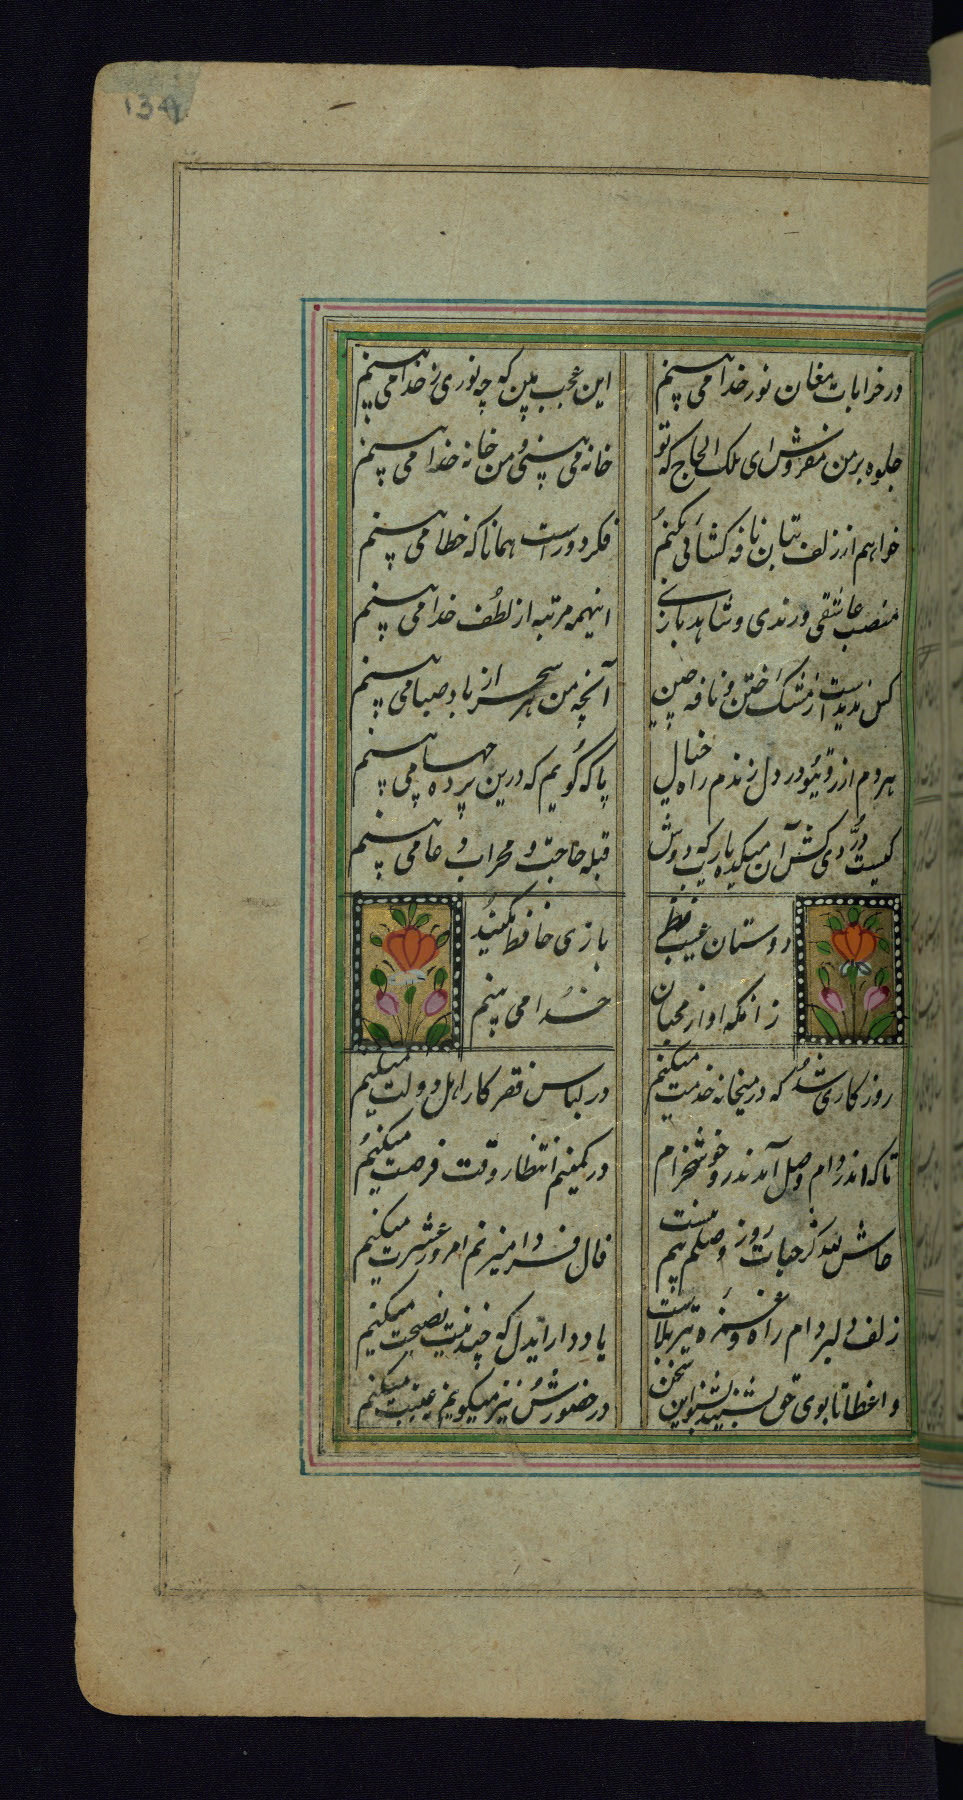 134
در خرابات مغان نور خدا می بینم
این عجب بین که چه نوری ز خدا می بینم
جلوه بر من مفروش ای ملک الحاج که تو
خانه می بینی و من خانه خدا می بینم
خواهم از زلف بتان نافه کشائی بکنم
فکر دورست همانا که خطا می بینم
منصب عاشقی و رندی و شاهد بازی
اینهمه مرتبه از لطف خدا می بینم
کس ندیدست از مشک ختن و نافه چین
آنچه من هر سحر از باد صبا می بینم
هر دم از روی تو در دل زندم راه خیال
با که گویم که درین پرده چها می بینم
کیست دردی کش آن میکده یارب که درش
قبله حاجت و محراب دعا می بینم
دوستان عیب نظر
بازی حافظ مکنید
زانکه او از محبان
خدا می بینم
روزکاری شد که در میخانه خدمت میکنم
در لباس فقر کار اهل دولت میکنم
تا که اندر دام وصل آمد تذرو خوشخرام
در کمینم انتظار وقت فرصت میکنم
حاش لله کز حیات روز وصلم بیم نیست
فال فردا میزنم امروز عشرت میکنم
زلف دلبر دام راه و غمزه تیر بلاست
یاد دار ایدل که چندینت نصیحت میکنم
واعظ ما بوی حق نشنید بشنو این سخن
در حضورش نیز میکویم نه غیبت میکنم